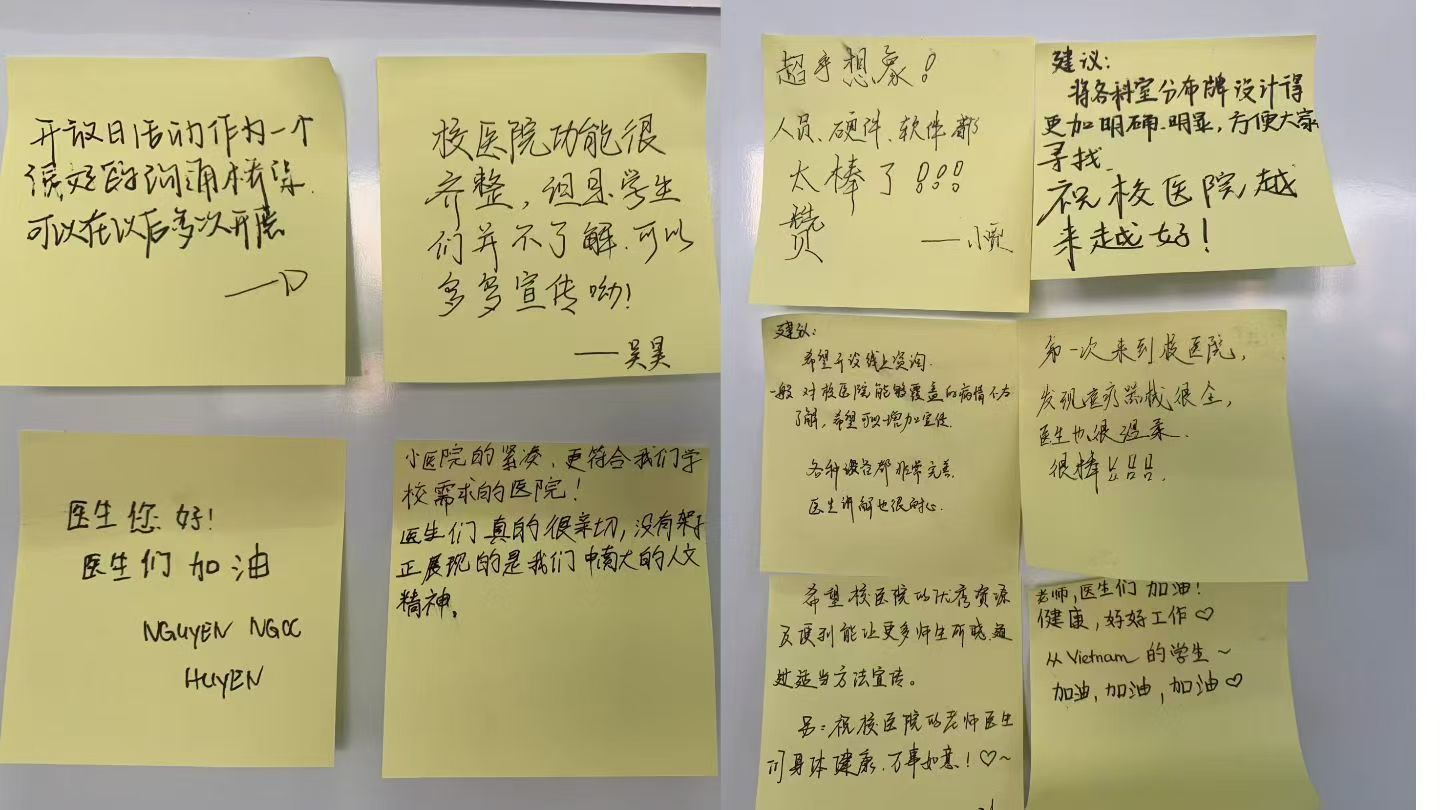 开放日活动作为一个
很好的沟通桥梁.
可以在以后多次开展
——D
校医院功能很
齐整，但是学生
们并不了解.可以
多多宣传呦!
——吴昊
医生您好!
医生们加油
NGUYEN NGOC
HUYEN
小医院的紧凑，更符合我们学
校需求的医院!
医生们真的很亲切，没有架子
正展现的是我们中南大的人文
精神。
超乎想象!
人员、硬件、软件都
太棒了!!!
赞
——小
建议:
将各科室分布牌设计得
更加明确.明显，方便大家
寻找.
祝校医院越
来越好!
建议:
希望开设线上咨询.
一般对校医院能够覆盖的病情不太
了解，希望可以增加宣传.
各种设备都非常完善.
医生讲解也很耐心.
第一次来到校医院，
发现医疗器械很全，
医生也很温柔.
很棒
希望校医院的优秀资源
及便利能让更多师生所晓.通
过适当方法宣传。
另:祝校医院的老师医生
们身体健康.万事如意!♡~
老师,医生们加油!
健康,好好工作♡
从Vietnam的学生~
加油,加油,加油♡